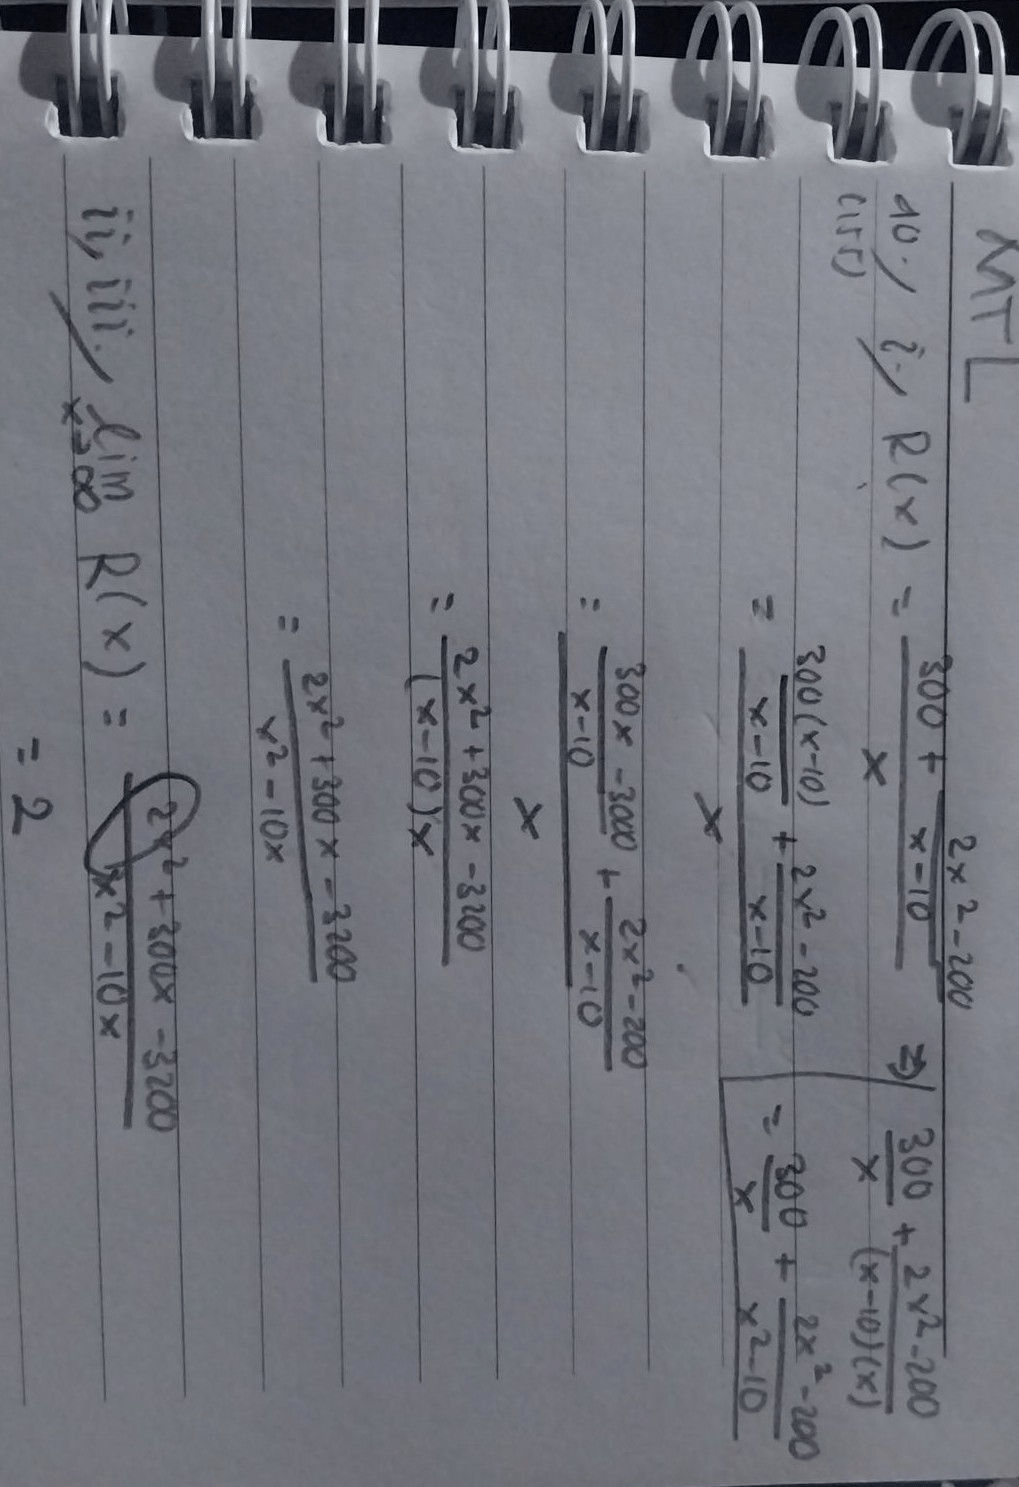 MTL
10./ i./ R(x) = (300 + (2x² - 200)/(x-10))/x ⇒ 300/x + (2x² - 200)/((x-10)(x))
(155)
= (300(x-10)/(x-10) + (2x² - 200)/(x-10))/x = 300/x + (2x² - 200)/(x² - 10)
= ((300x - 3000)/(x-10) + (2x² - 200)/(x-10))/x
= (2x² + 300x - 3200)/((x-10)x)
= (2x² + 300x - 3200)/(x² - 10x)
ii, iii./ lim x→∞ R(x) = (2x² + 300x - 3200)/(x² - 10x)
= 2